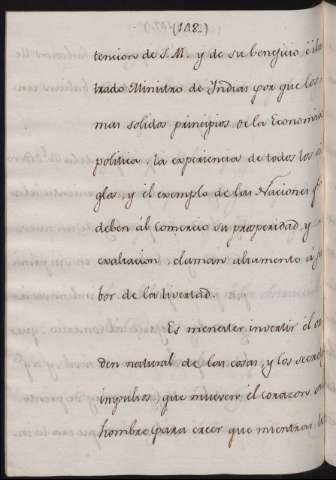 (118.)
tencion de S. M. y de su benefico ilus
trado Ministro de Indias por que los
mas solidos principios de la Economia
politica, la experiencia de todos los
glos, y él exemplo de las Naciones
deben ál comercio su prosperidad, y
exaltacion, claman altamente á fa
bor de la livertad.
Es menester invertir él or
den natural de las cosas, y los secre
impulsos, que mueven él corazon
hombre para creer que mientras